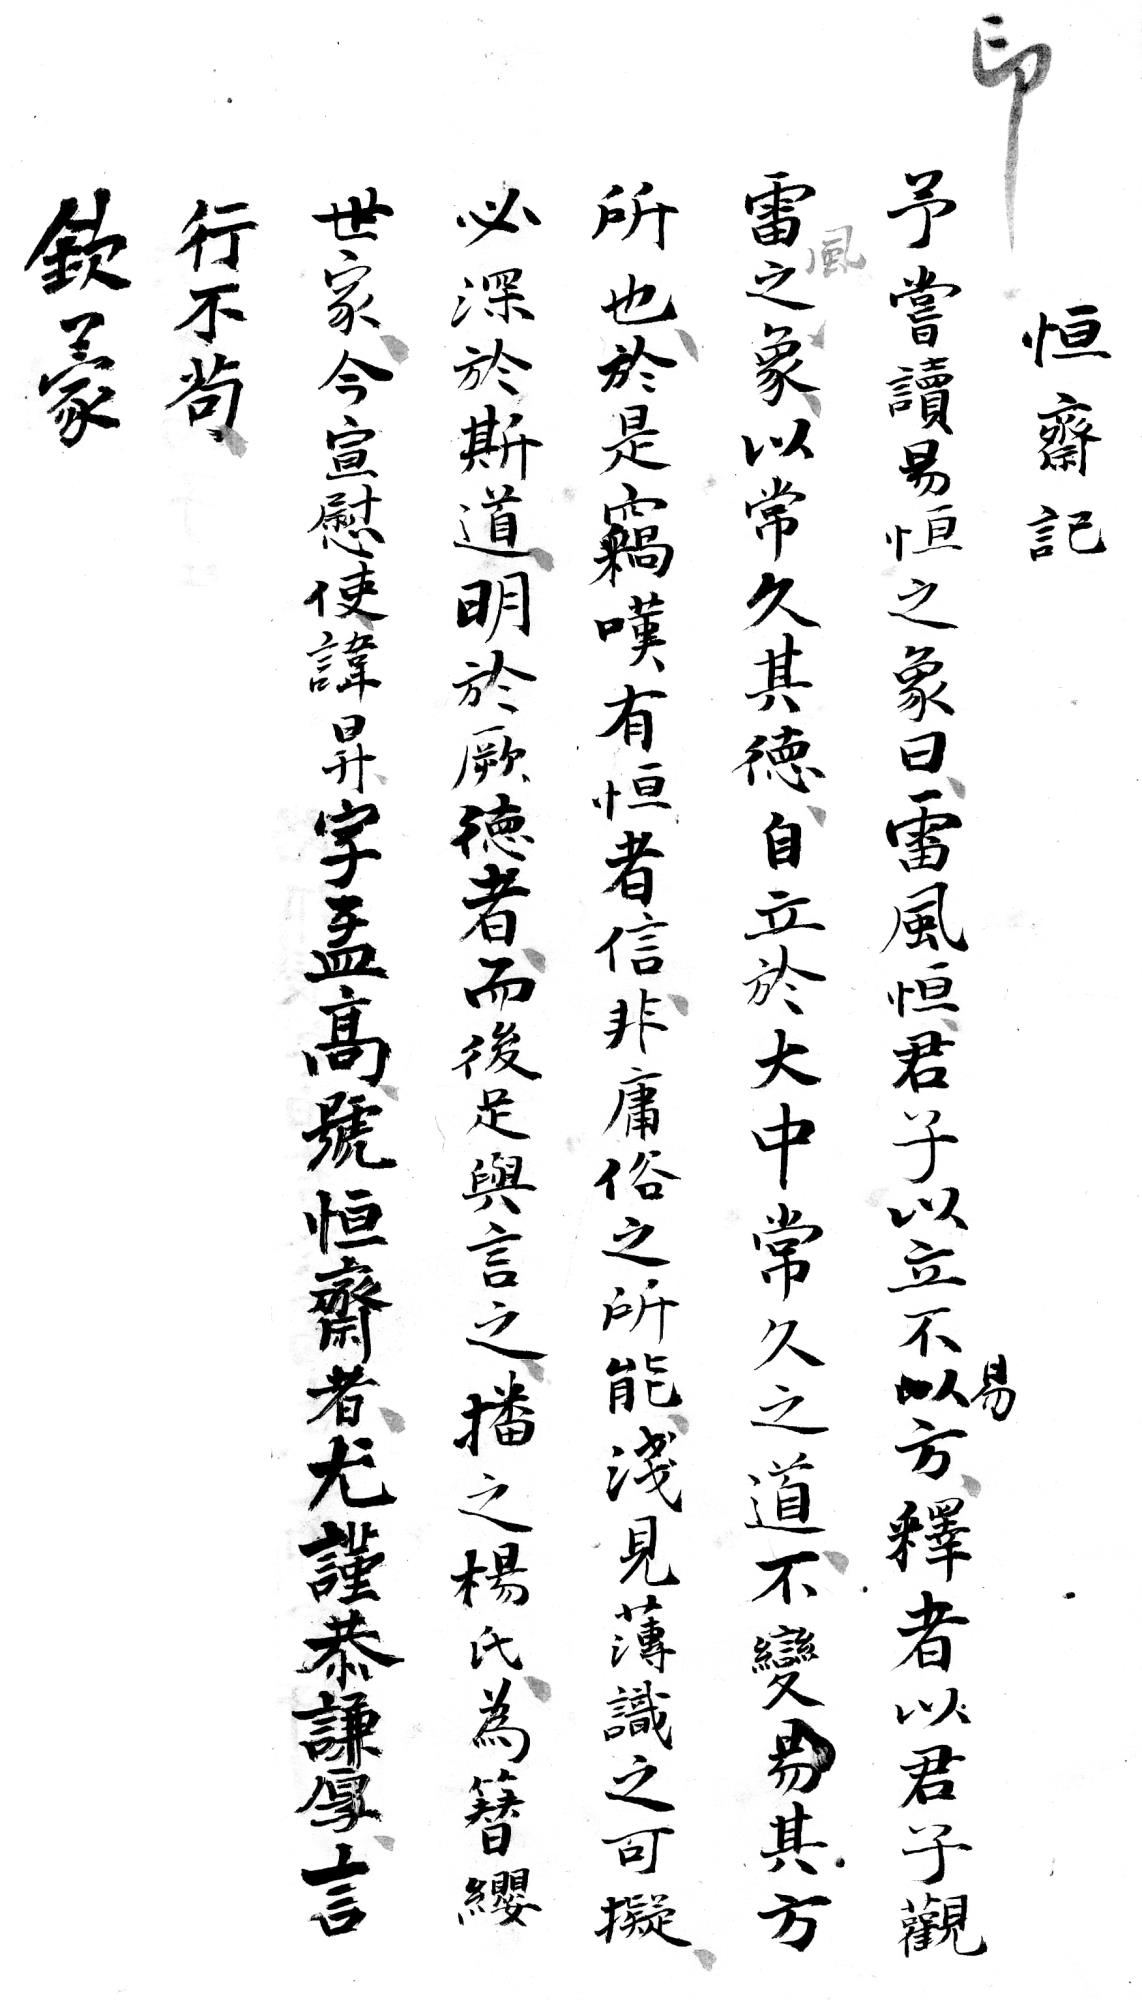 印
恒齋記
予嘗讀易恒之象曰雷風恒君子以立不以方釋者以君子觀
易
雷之象以常久其德自立於大中常久之道不變易其方
風
所也於是竊嘆有恒者信非庸俗之所能淺見薄識之可擬
必深於斯道明於厥德者而後足與言之播之楊氏為簪纓
世家今宣慰使諱昇字孟高號恒齋者尤謹恭謙厚言
行不苟
欽蒙